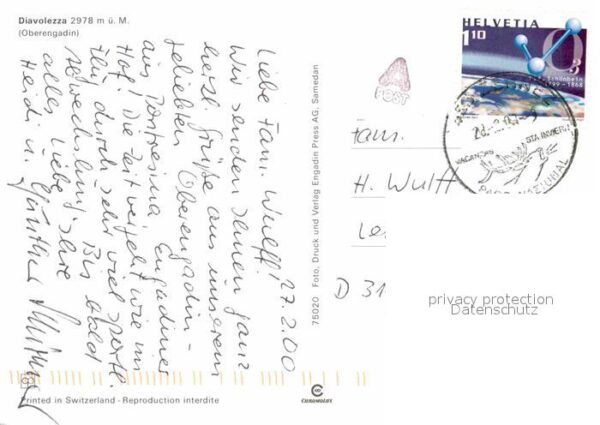 Diavolezza 2978 m ü. M.
(Oberengadin)
27.2.00
Liebe Fam. Wulff!
Wir senden Ihnen ganz
herzl. Grüße aus unserem
geliebten Oberengadin -
aus Pontresina Engadiner
Hof! Die Zeit vergeht wie im
Flug durch sehr viel sportl.
Abwechslung. Bis bald
alles Liebe Ihre
Heidi u. Günther
75020 Foto, Druck und Verlag Engadin Press AG, Samedan
POST
HELVETIA
110
O3
Schönbein
1799-1868
VACANZAS
PARC NAZIONAL
Fam.
H. Wulff
D 31
privacy protection
Datenschutz
Printed in Switzerland - Reproduction interdite
CHROMOLITH